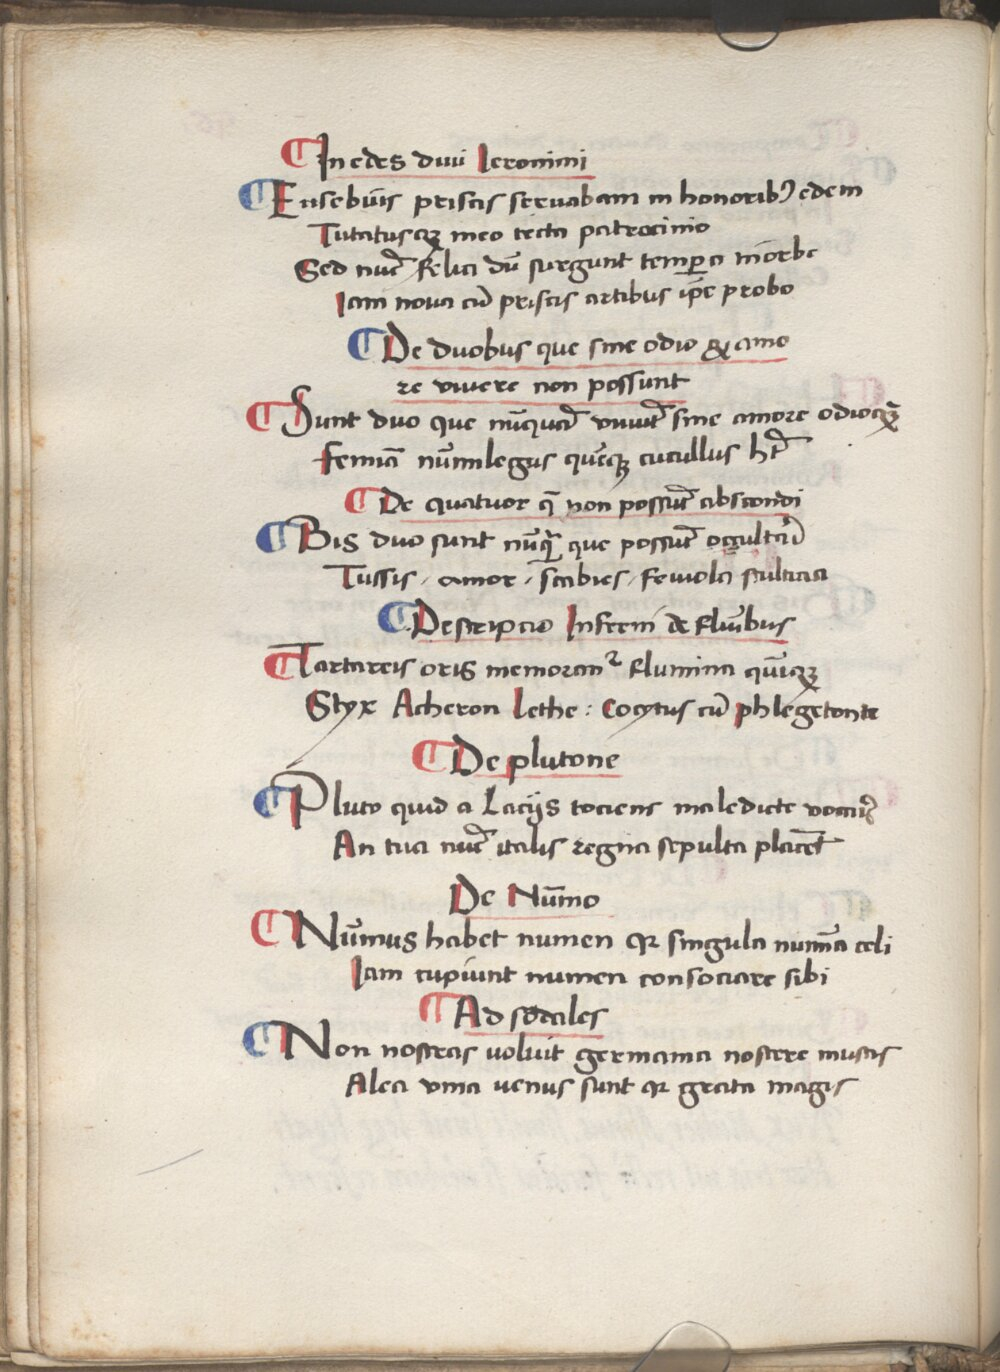 ¶ In edes diui Ieronimi
¶ Eusebiꝰ priscis seruabam in honoribꝰ edem
Tutatusqꝫ meo tecta patrocinio
Sed nūc felici dū surgunt tempora in orbe
Iam noua cū priscis artibus ip̄e probo
¶ De duobus que sine odio & amo
re viuere non possunt
¶ Sunt duo que nūquā viuūt sine amore odioqꝫ
Femīa nūmilegus quēqꝫ cucullus hꝫ
¶ De quatuor q̄ non possūt abscondi
¶ Bis duo sunt nūqꝫ que possūt occultari
Tussis, amor, scabies, feruola stulticia
¶ Descripcio Inferni de fluuibus
¶ Tartareis oris memorantᷣ flumina quīqꝫ
Styx Acheron Lethe : Cocytus cū phlegetonte
¶ De plutone
¶ Pluto quid a Laciis tociens maledicte vocaris
An tua nūc italis regna sepulta placēt
De Nūmo
¶ Nūmus habet numen qꝛ singula numīa celi
Iam cupiunt numen consociare sibi
¶ Ad sodales
¶ Non nostras voluit germania noscere musas
Alea vina venus sunt qꝛ grata magis